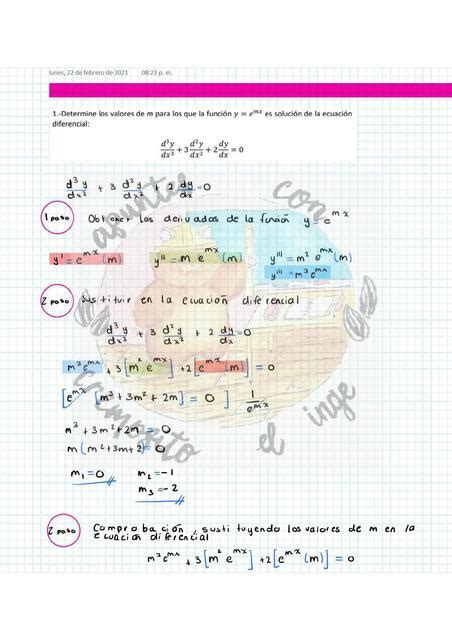 lunes, 22 de febrero de 2021 08:23 p. m.
1.-Determine los valores de m para los que la función y = e^{mx} es solución de la ecuación
diferencial:
d³y/dx³ + 3 d²y/dx² + 2 dy/dx = 0
d³y/dx³ + 3 d²y/dx² + 2 dy/dx = 0
1 paso Obtener las derivadas de la función y = e^{mx}
y' = e^{mx} (m) y'' = m e^{mx} (m) y''' = m² e^{mx} (m)
y''' = m³ e^{mx}
2 paso Sustituir en la ecuación diferencial
d³y/dx³ + 3 d²y/dx² + 2 dy/dx = 0
m³e^{mx} + 3[m² e^{mx}] + 2[e^{mx} (m)] = 0
[e^{mx} [m³ + 3m² + 2m] = 0 ] 1/e^{mx}
m³ + 3m² + 2m = 0
m(m² + 3m + 2) = 0
m₁ = 0 m₂ = -1
m₃ = -2
2 paso Comprobación, sustituyendo los valores de m en la
ecuación diferencial
m³e^{mx} + 3[m² e^{mx}] + 2[e^{mx} (m)] = 0
apuntes con
cremosito el inge